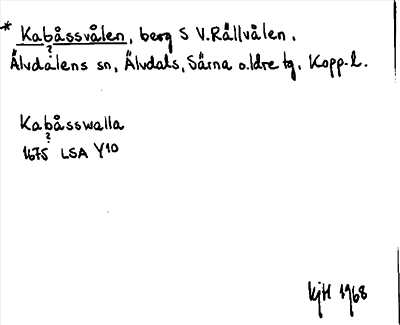 * Kabåssvålen, berg S V. Rållvålen.
?
Älvdalens sn, Älvdals, Särna o. Idre tg. Kopp. l.
Kabåsswalla
?
1675 LSA Y10
KjH 1968